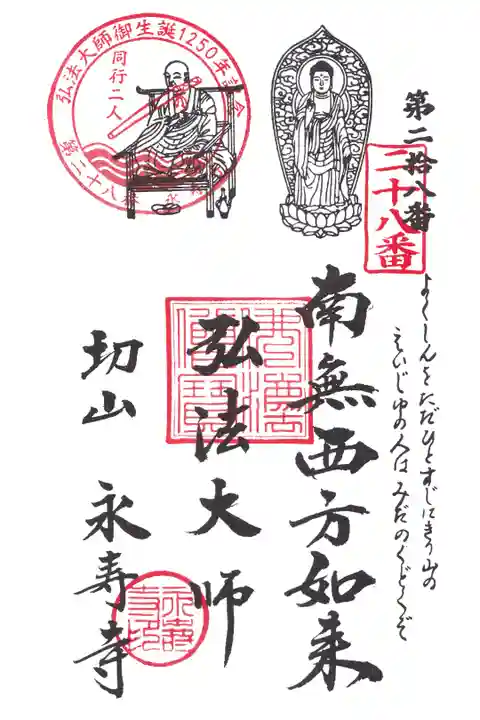 第二拾八番
二十八番
よくしんをただひとすじにきり山の
えいじゆの人はみだのくどくぞ
南無西方如来
弘法大師
切山 永寿寺
弘法大師御生誕1250年記念
同行二人
二十八番